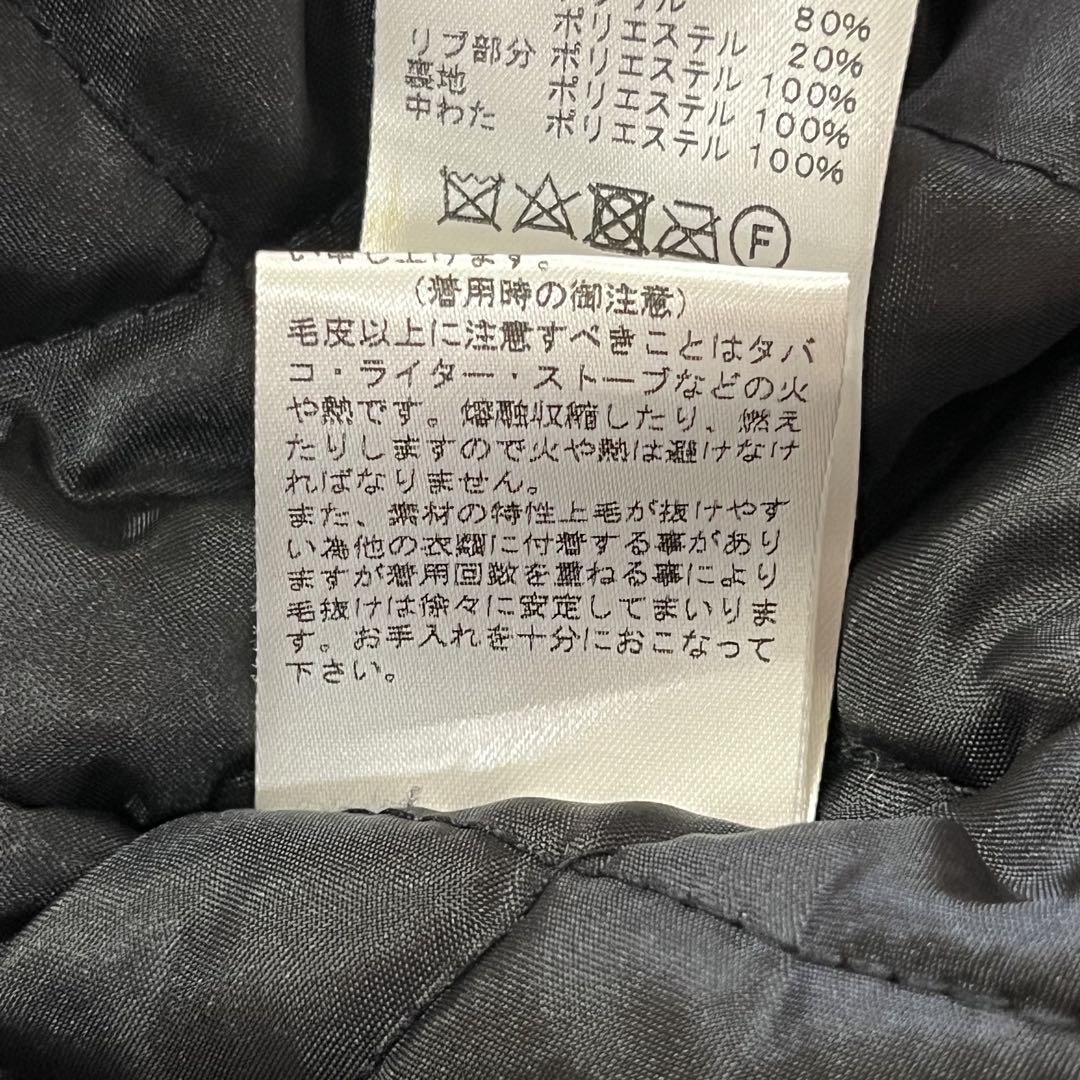 80%
ポリエステル 20%
リブ部分 ポリエステル 100%
裏地 ポリエステル 100%
中わた ポリエステル 100%
F
い申し上げます。
(着用時の御注意)
毛皮以上に注意すべきことはタバ
コ・ライター・ストーブなどの火
や熱です。熔融収縮したり、燃え
たりしますので火や熱は避けなけ
ればなりません。
また、素材の特性上毛が抜けやす
い為他の衣類に付着する事があり
ますが着用回数を重ねる事により
毛抜けは徐々に安定してまいりま
す。お手入れを十分におこなって
下さい。